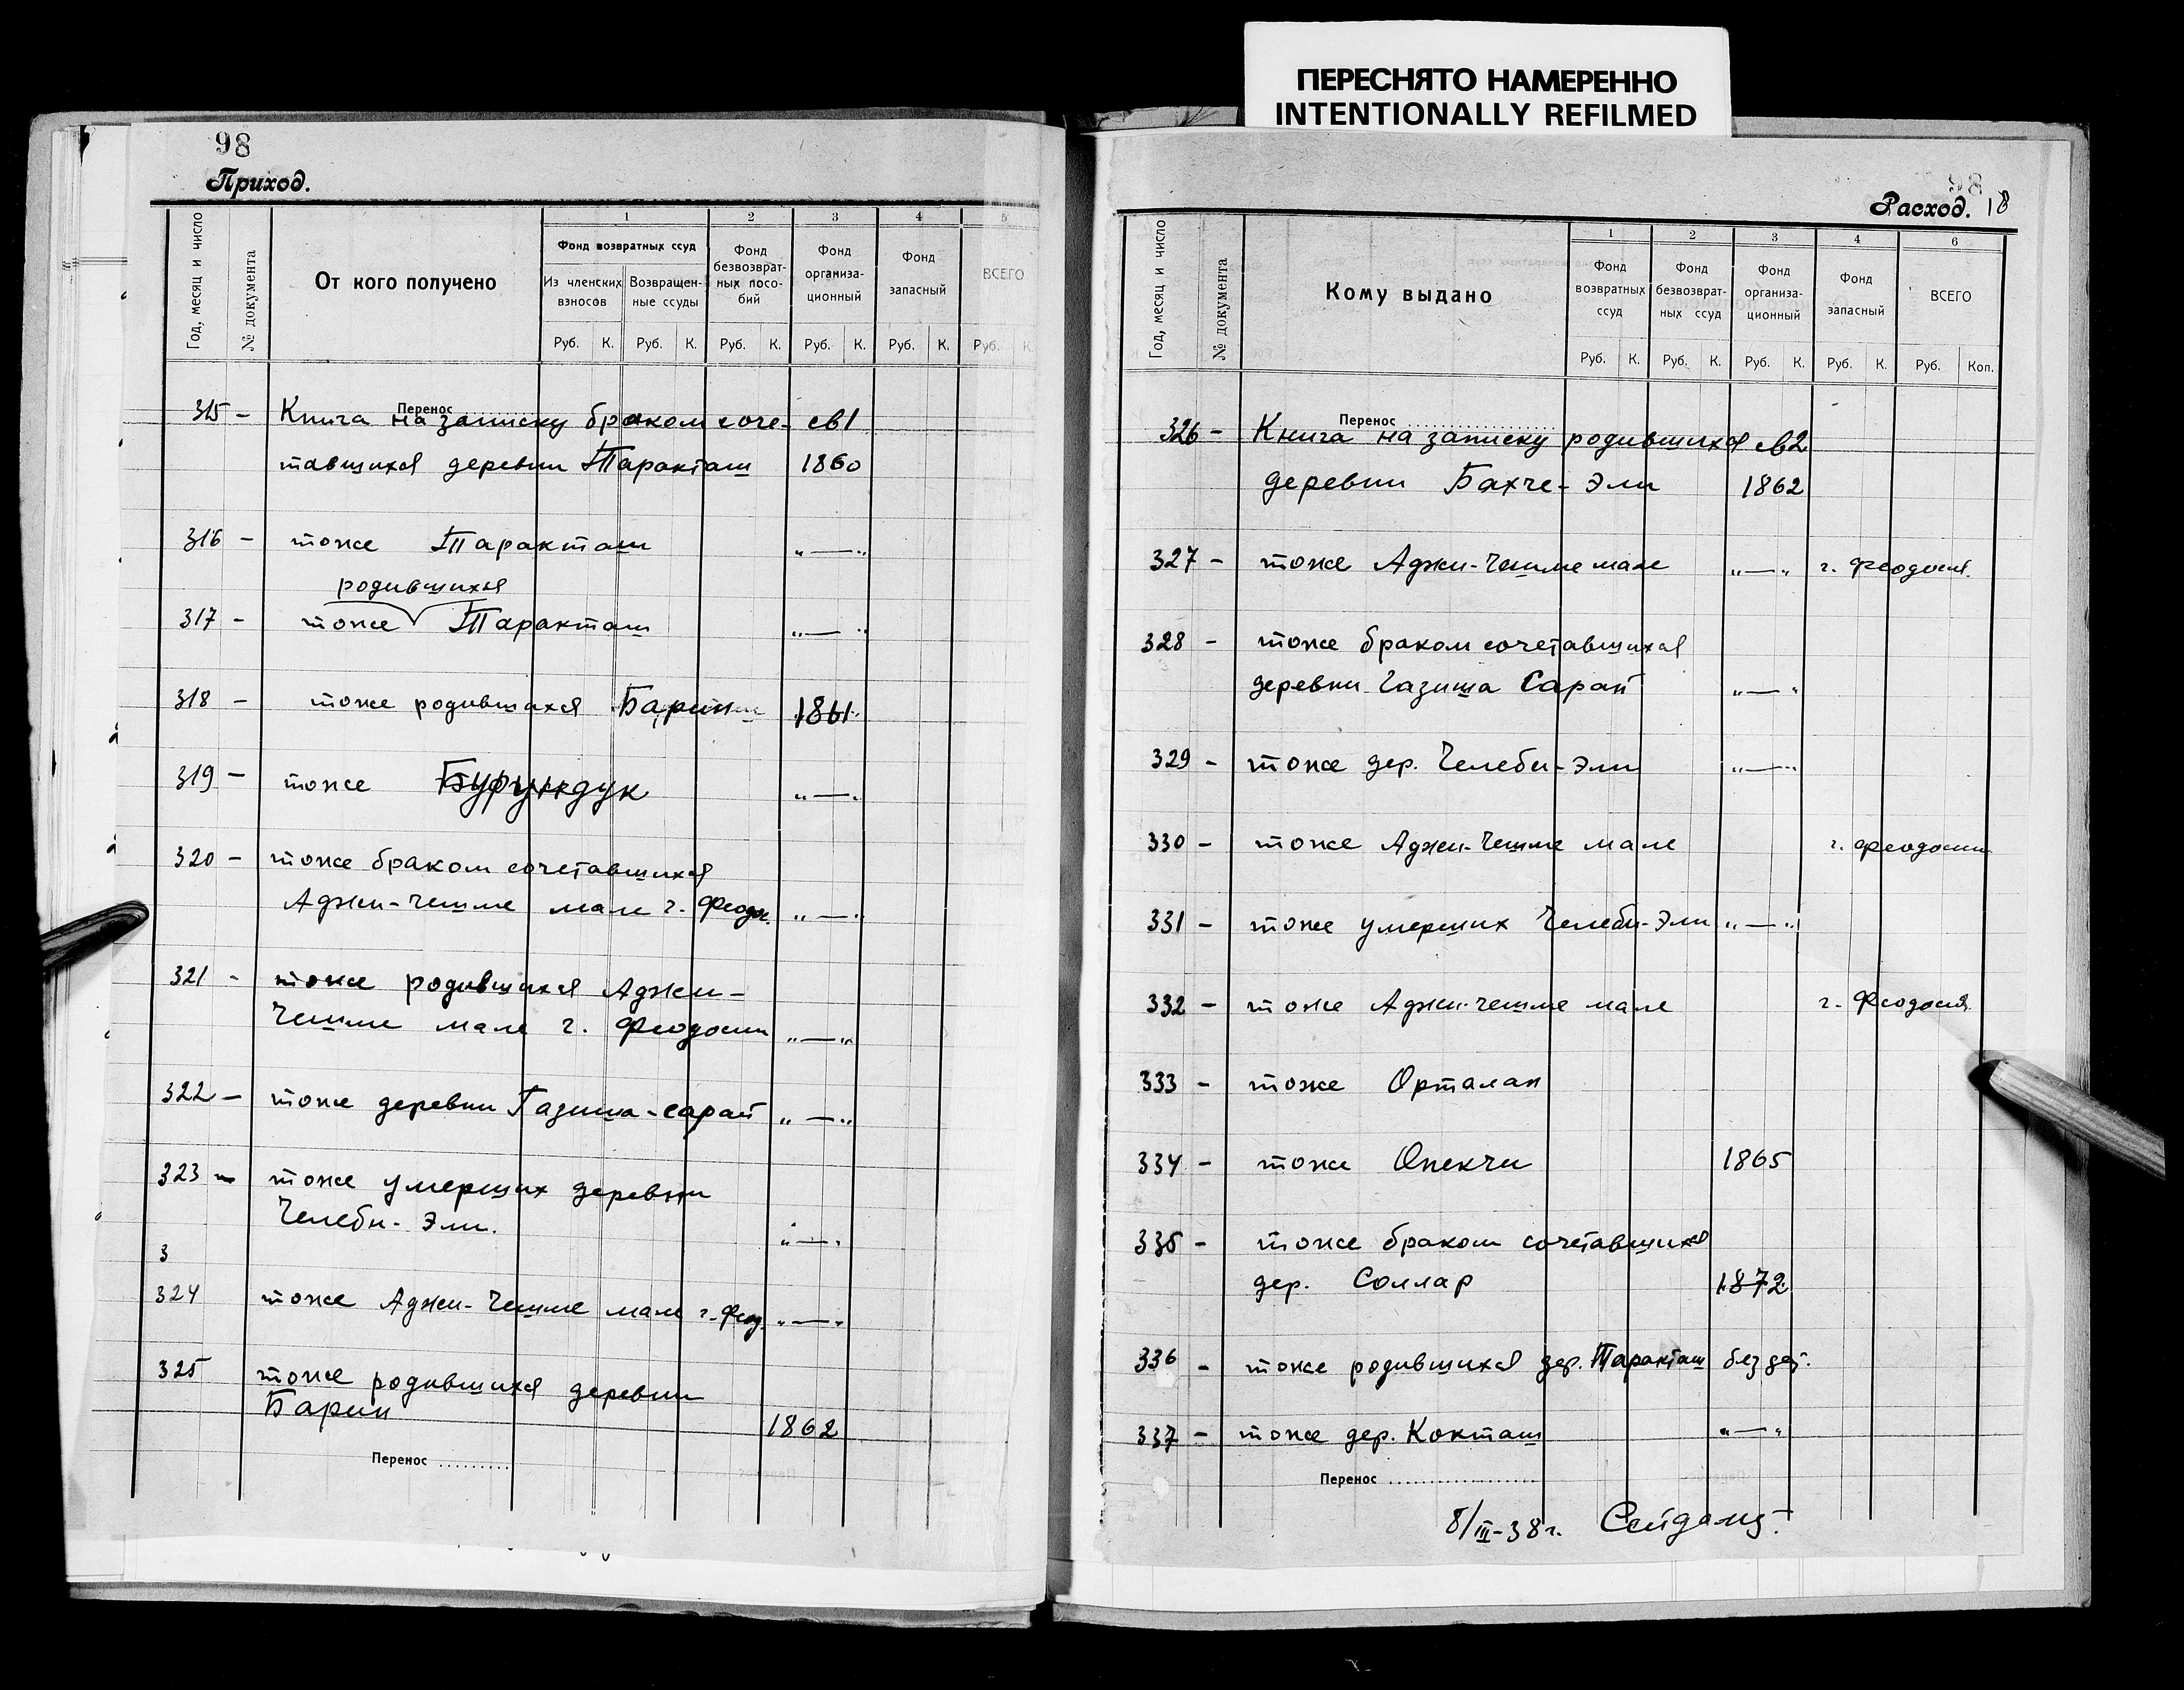 ПЕРЕСНЯТО НАМЕРЕННО
INTENTIONALLY REFILMED
98
Приход.
Год, месяц и число
№ документа
От кого получено
1
Фонд возвратных ссуд
Из членских взносов
Возвращен-ные ссуды
2
Фонд безвозврат-ных посо-бий
3
Фонд организа-ционный
4
Фонд запасный
5
ВСЕГО
Руб. К. Руб. К. Руб. К. Руб. К. Руб. К. Руб. К.
Перенос
315 - Книга на записку браком соче- св1
тавшихся деревни Таракташ 1860
316 - тоже Таракташ "—"
родившихся
317 - тоже Таракташ "—"
318 - тоже родившихся Барин 1861
319 - тоже Бурундук "—"
320 - тоже браком сочетавшихся
Аджи-чешме мале г. Феодос. "—"
321 - тоже родившихся Аджи-
Чешме мале г. Феодосии "—"
322 - тоже деревни Газиша-сарай "—"
323 - тоже умерших деревни
Челеби-Эли. "—"
3
324 тоже Аджи-Чешме мале г. Феод. "—"
325 тоже родившихся деревни
Барин 1862
Перенос .........
98
Расход. 18
Год, месяц и число
№ документа
Кому выдано
1
Фонд возвратных ссуд
2
Фонд безвозврат-ных ссуд
3
Фонд организа-ционный
4
Фонд запасный
6
ВСЕГО
Руб. К. Руб. К. Руб. К. Руб. К. Руб. Коп.
Перенос
326 - Книга на записку родившихся св2
деревни Бахче-Эли 1862
327 - тоже Аджи-Чешме мале "—" г. Феодосия.
328 - тоже браком сочетавшихся
деревни Газиша Сарай "—"
329 - тоже дер. Челеби-Эли "—"
330 - тоже Аджи-Чешме мале г. Феодосии
331 - тоже умерших Челеби-Эли "—"
332 - тоже Аджи-чешме мале г. Феодосия
333 - тоже Орталан
334 - тоже Опекчи 1865
335 - тоже браком сочетавшихся
дер. Соллар 1872
336 - тоже родившихся дер. Таракташ без дат.
337 - тоже дер. Кокташ "—"
Перенос ..................
8/III-38 г.